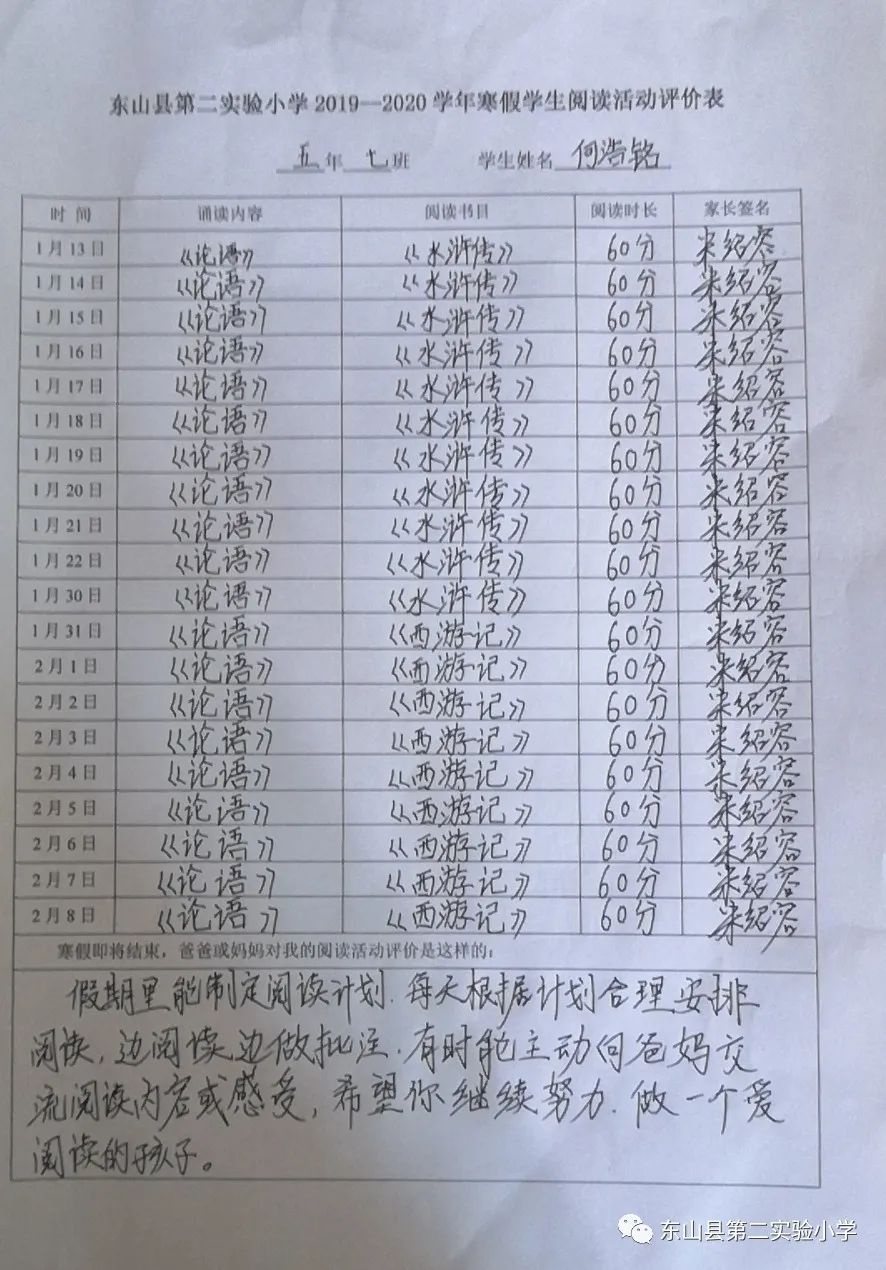 东山县第二实验小学2019—2020学年寒假学生阅读活动评价表
五年七班 学生姓名 何浩铭
时间 诵读内容 阅读书目 阅读时长 家长签名
1月13日 《论语》 《水浒传》 60分 朱绍容
1月14日 《论语》 《水浒传》 60分 朱绍容
1月15日 《论语》 《水浒传》 60分 朱绍容
1月16日 《论语》 《水浒传》 60分 朱绍容
1月17日 《论语》 《水浒传》 60分 朱绍容
1月18日 《论语》 《水浒传》 60分 朱绍容
1月19日 《论语》 《水浒传》 60分 朱绍容
1月20日 《论语》 《水浒传》 60分 朱绍容
1月21日 《论语》 《水浒传》 60分 朱绍容
1月22日 《论语》 《水浒传》 60分 朱绍容
1月30日 《论语》 《水浒传》 60分 朱绍容
1月31日 《论语》 《西游记》 60分 朱绍容
2月1日 《论语》 《西游记》 60分 朱绍容
2月2日 《论语》 《西游记》 60分 朱绍容
2月3日 《论语》 《西游记》 60分 朱绍容
2月4日 《论语》 《西游记》 60分 朱绍容
2月5日 《论语》 《西游记》 60分 朱绍容
2月6日 《论语》 《西游记》 60分 朱绍容
2月7日 《论语》 《西游记》 60分 朱绍容
2月8日 《论语》 《西游记》 60分 朱绍容
寒假即将结束，爸爸或妈妈对我的阅读活动评价是这样的：
假期里能制定阅读计划.每天根据计划合理安排
阅读，边阅读边做批注.有时能主动向爸妈交
流阅读内容或感受，希望你继续努力.做一个爱
阅读的孩子。
东山县第二实验小学